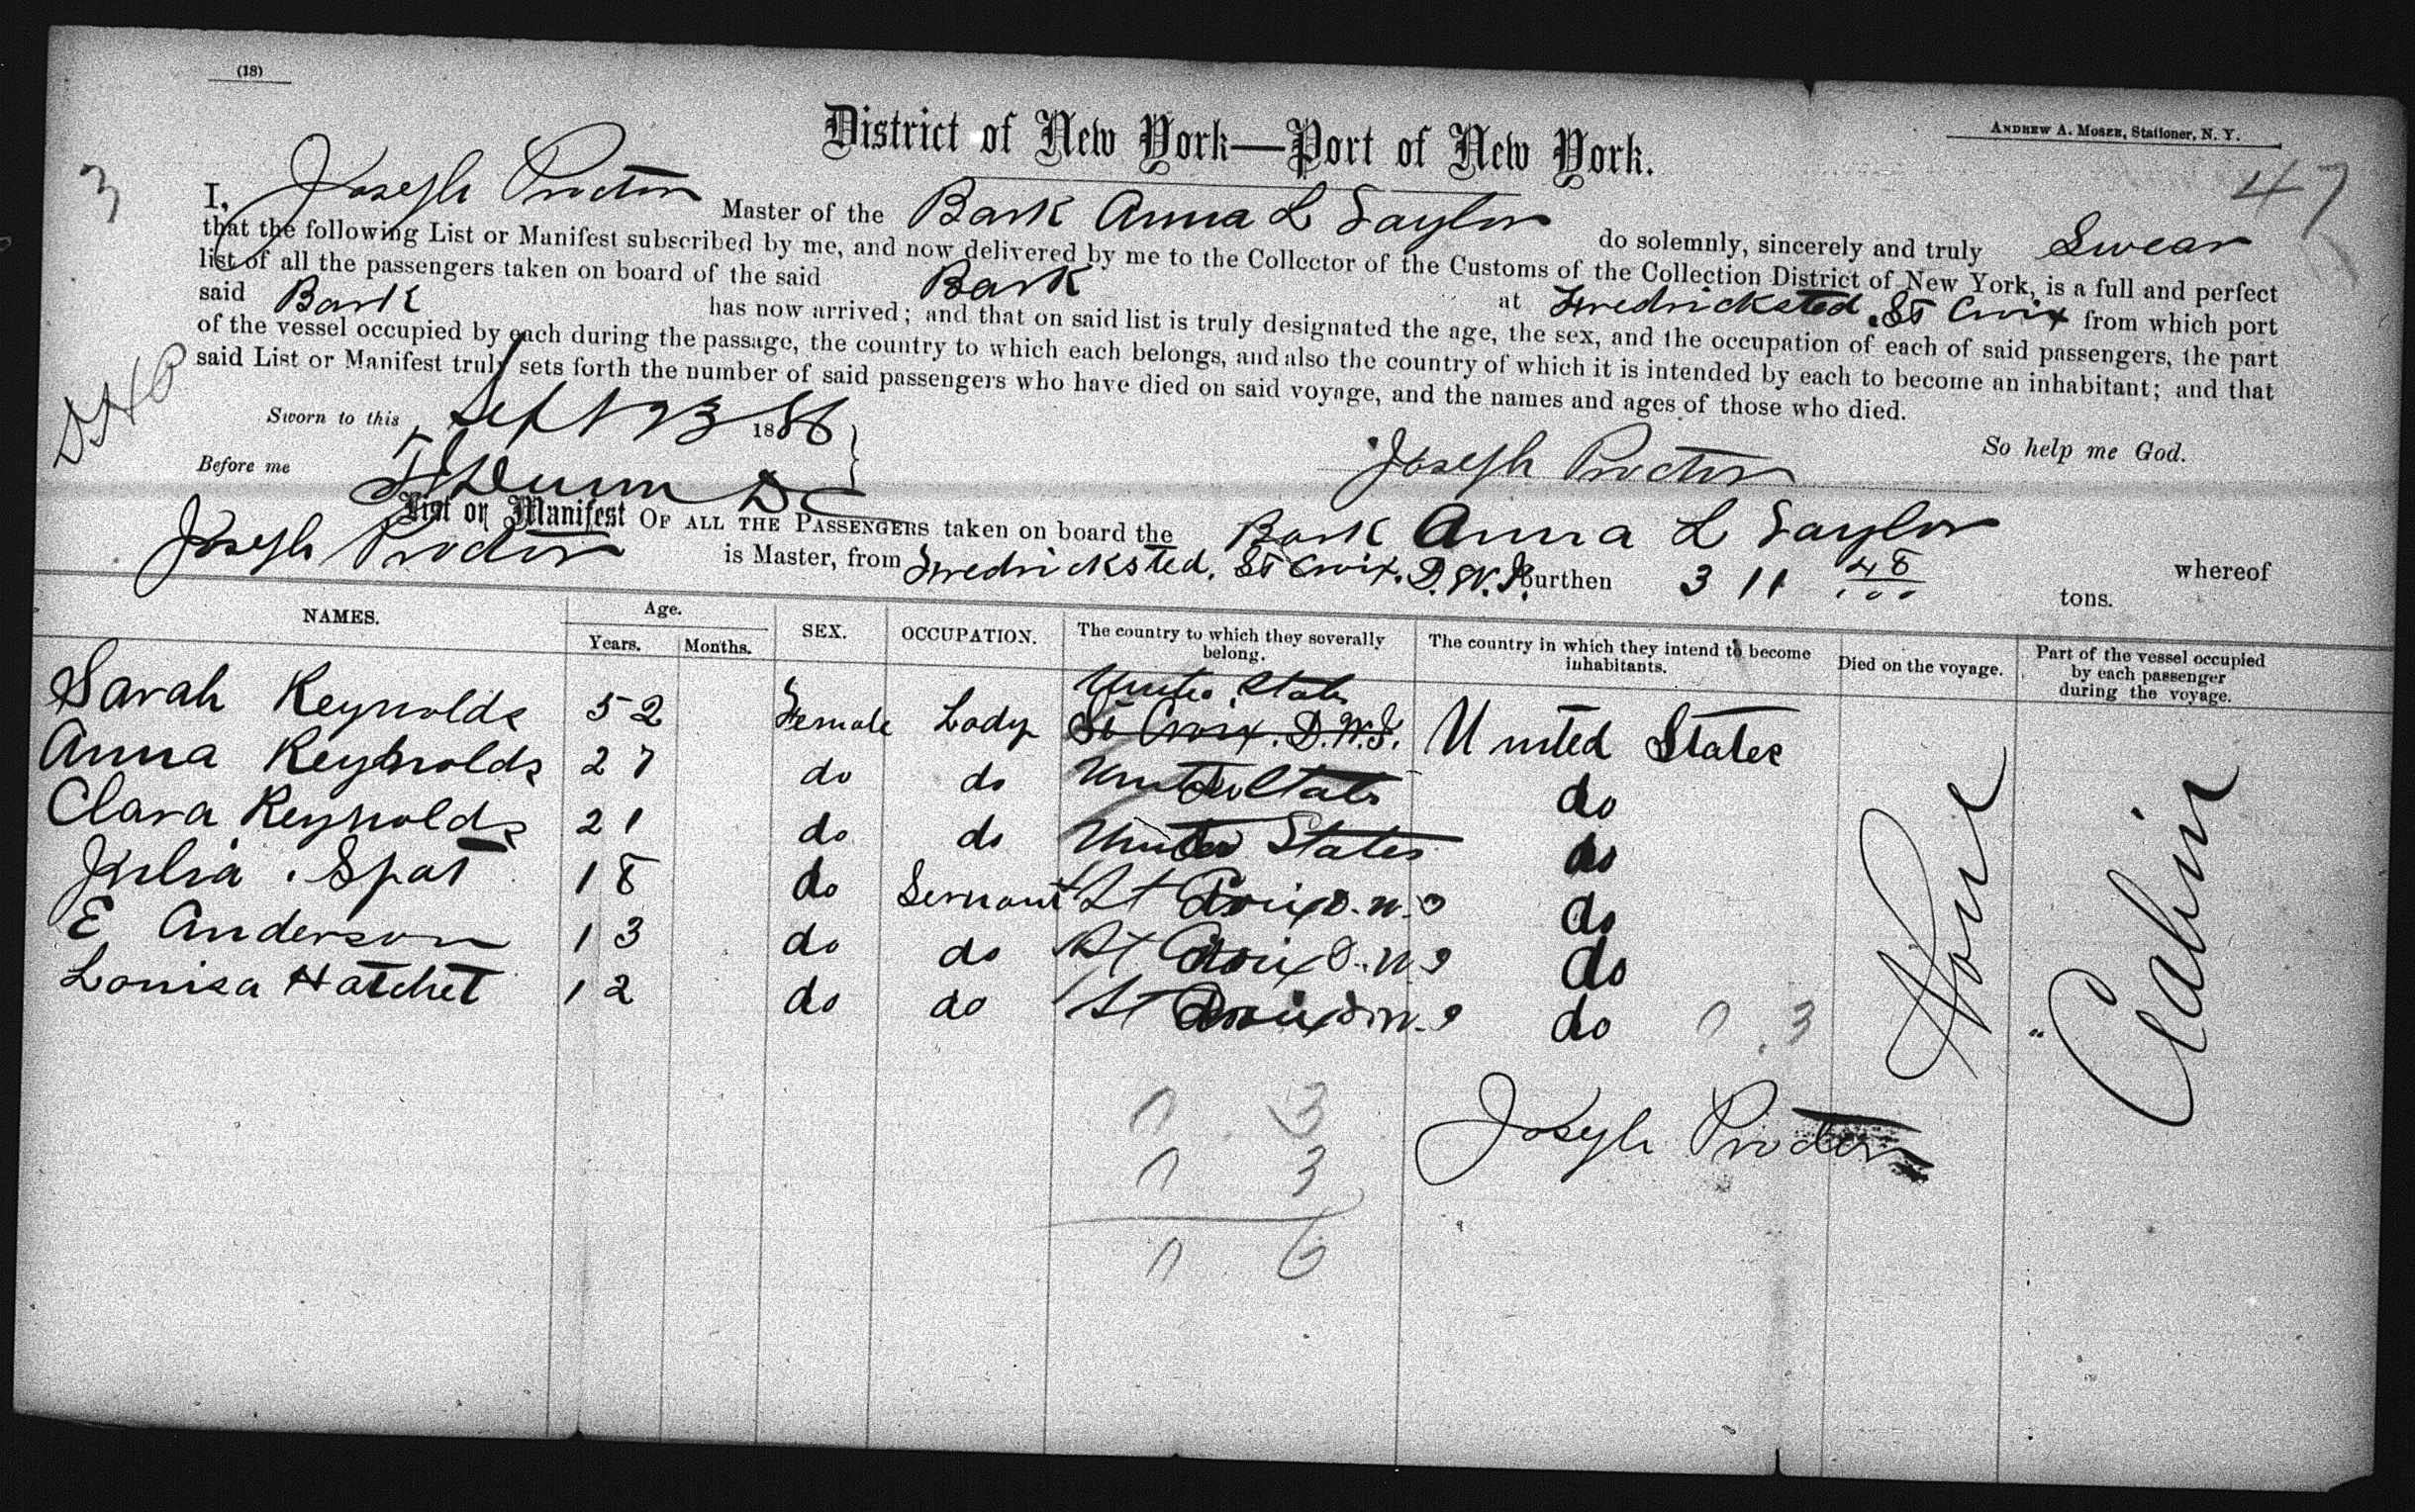 (18)
District of New York—Port of New York.
ANDREW A. MOSER, Stationer, N. Y.
3
47
I, Joseph Proctor Master of the Bark Anna L Taylor do solemnly, sincerely and truly Swear
that the following List or Manifest subscribed by me, and now delivered by me to the Collector of the Customs of the Collection District of New York, is a full and perfect
list of all the passengers taken on board of the said Bark at Fredricksted, St Croix from which port
said Bark has now arrived; and that on said list is truly designated the age, the sex, and the occupation of each of said passengers, the part
of the vessel occupied by each during the passage, the country to which each belongs, and also the country of which it is intended by each to become an inhabitant; and that
said List or Manifest truly sets forth the number of said passengers who have died on said voyage, and the names and ages of those who died.
Sworn to this Sept 23 1886
So help me God.
Before me Dunn DC
Joseph Proctor
List or Manifest OF ALL THE PASSENGERS taken on board the Bark Anna L Taylor whereof
Joseph Proctor is Master, from Fredricksted, St Croix. D.W.I. burthen 311 48/100 tons.
NAMES. Age. Years. Months. SEX. OCCUPATION. The country to which they severally belong. The country in which they intend to become inhabitants. Died on the voyage. Part of the vessel occupied by each passenger during the voyage.
United States
Sarah Reynolds 52 Female Lady St Croix. D.W.I. United States
Anna Reynolds 27 do do United States do
Clara Reynolds 21 do do United States do
Julia Spat 18 do Servant St Croix D.W.I do
E Anderson 13 do do St Croix D.W.I do
Louisa Hatchet 12 do do St Croix D.W.I do 0 3
None
Cabin
0 3
Joseph Proctor
0 3
0 6